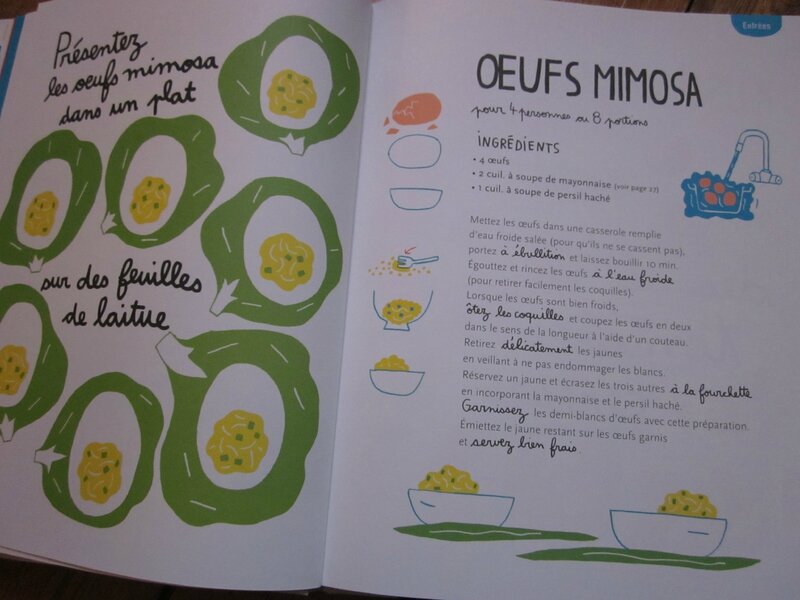 Présentez
les œufs mimosa
dans un plat
sur des feuilles
de laitue
Entrées
ŒUFS MIMOSA
pour 4 personnes ou 8 portions
iNGRÉDiENTS
• 4 œufs
• 2 cuil. à soupe de mayonnaise (voir page 27)
• 1 cuil. à soupe de persil haché
Mettez les œufs dans une casserole remplie
d'eau froide salée (pour qu'ils ne se cassent pas),
portez à ébullition et laissez bouillir 10 min.
Égouttez et rincez les œufs à l'eau froide
(pour retirer facilement les coquilles).
Lorsque les œufs sont bien froids,
ôtez les coquilles et coupez les œufs en deux
dans le sens de la longueur à l'aide d'un couteau.
Retirez délicatement les jaunes
en veillant à ne pas endommager les blancs.
Réservez un jaune et écrasez les trois autres à la fourchette
en incorporant la mayonnaise et le persil haché.
Garnissez les demi-blancs d'œufs avec cette préparation.
Émiettez le jaune restant sur les œufs garnis
et servez bien frais.